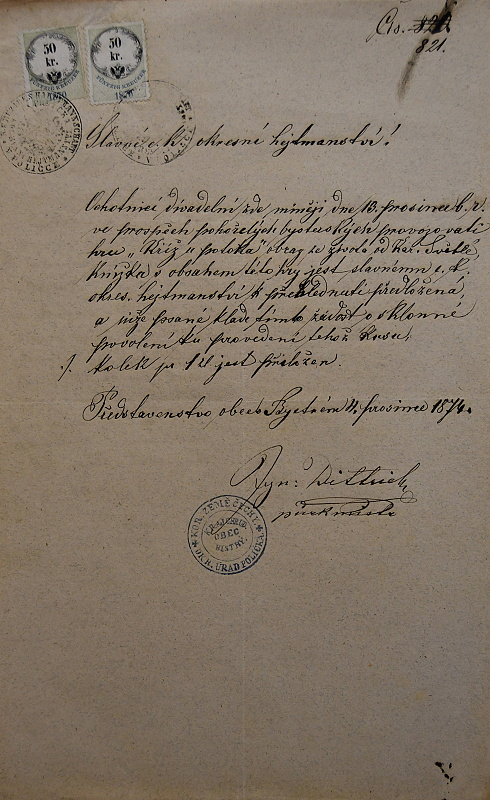 Čís. 820
821.
50 kr.
50 kr.
Slavné c. k. okresní hejtmanství!
Ochotníci divadelní zde mínějí dne 13. prosince b. r.
ve prospěch pohořelých bysterských provozovati
hru „Kříž u potoka" obraz ze života od Kar. Světlé,
Knížka s obsahem této hry jest slavnému c. k.
okres. hejtmanství k přehlédnutí předložena,
a níže psané klade tímto žádost o sklonné
povolení ku provedení tohož kusu.
./. Kolek pr 1 zl jest přiložen.
Představenstvo obce Bystrém 4. prosince 1874.
Dittrich
purkmistr
KOR. ZEMĚ ČECHY.
OBEC
BISTRÝ.
OKR. ÚŘAD POLIČKA.